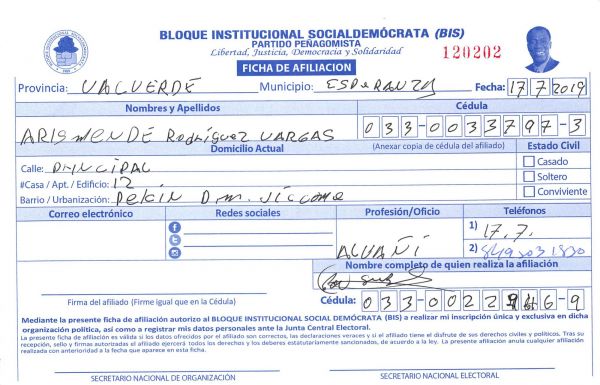 BLOQUE INSTITUCIONAL SOCIALDEMÓCRATA (BIS)
PARTIDO PEÑAGOMISTA
Libertad, Justicia, Democracia y Solidaridad
120202
FICHA DE AFILIACION
Provincia: VALVERDE Municipio: ESPERANZA Fecha: 17 7 2019
Nombres y Apellidos Cédula
ARISMENDE Rodríguez VARGAS 033-0033797-3
Domicilio Actual (Anexar copia de cédula del afiliado) Estado Civil
Calle: PRINCIPAL Casado
#Casa / Apt. / Edificio: 12 Soltero
Barrio / Urbanización: Pekín D.m. Conviviente
Correo electrónico Redes sociales Profesión/Oficio Teléfonos
1) 17.7.
ALVAÑÍ 2)
Nombre completo de quien realiza la afiliación
Firma del afiliado (Firme igual que en la Cédula) Cédula: 033-0022
Mediante la presente ficha de afiliación autorizo al BLOQUE INSTITUCIONAL SOCIAL DEMÓCRATA (BIS) a realizar mi inscripción única y exclusiva en dicha
organización política, así como a registrar mis datos personales ante la Junta Central Electoral.
La presente ficha de afiliación es válida si los datos ofrecidos por el afiliado son correctos, las declaraciones veraces y si el afiliado tiene el disfrute de sus derechos civiles y políticos. Tras su
recepción, sello y firmas autorizadas el afiliado ejercerá todos los derechos y los deberes estatutariamente sancionados, de acuerdo a la ley. La presente afiliación anula cualquier afiliación
realizada con anterioridad a la fecha que aparece en esta ficha.
SECRETARIO NACIONAL DE ORGANIZACIÓN SECRETARIO NACIONAL ELECTORAL